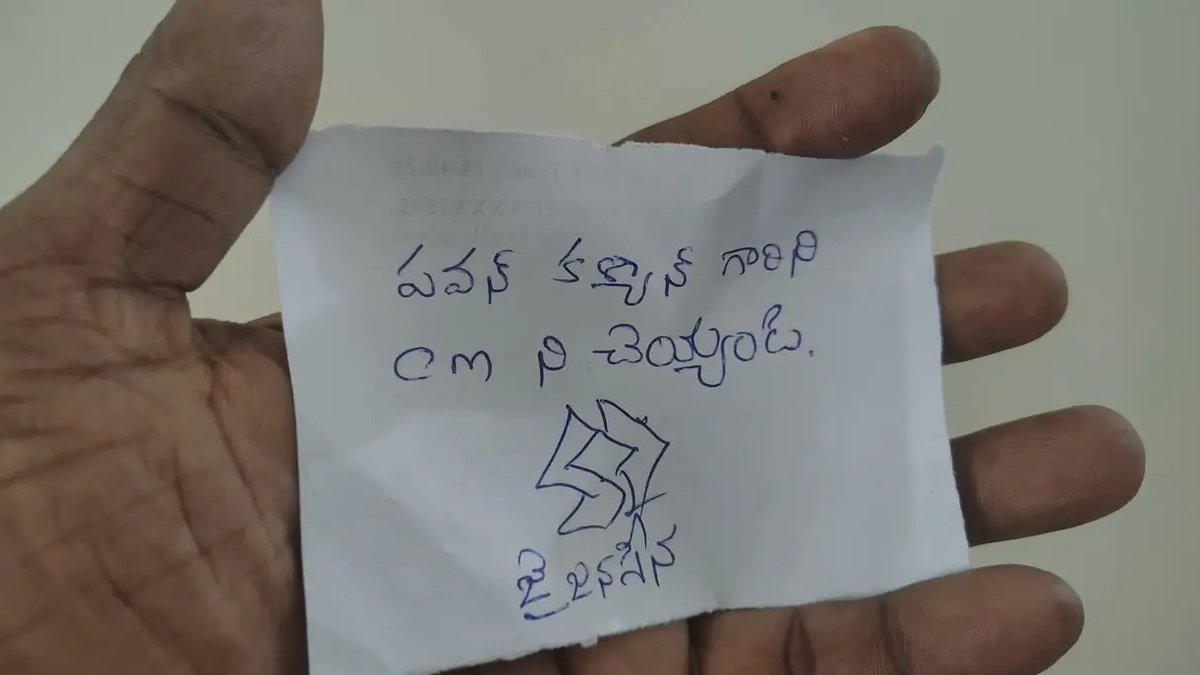 పవన్ కళ్యాణ్ గారిని
CM ని చెయ్యండి.
జై జనసేన